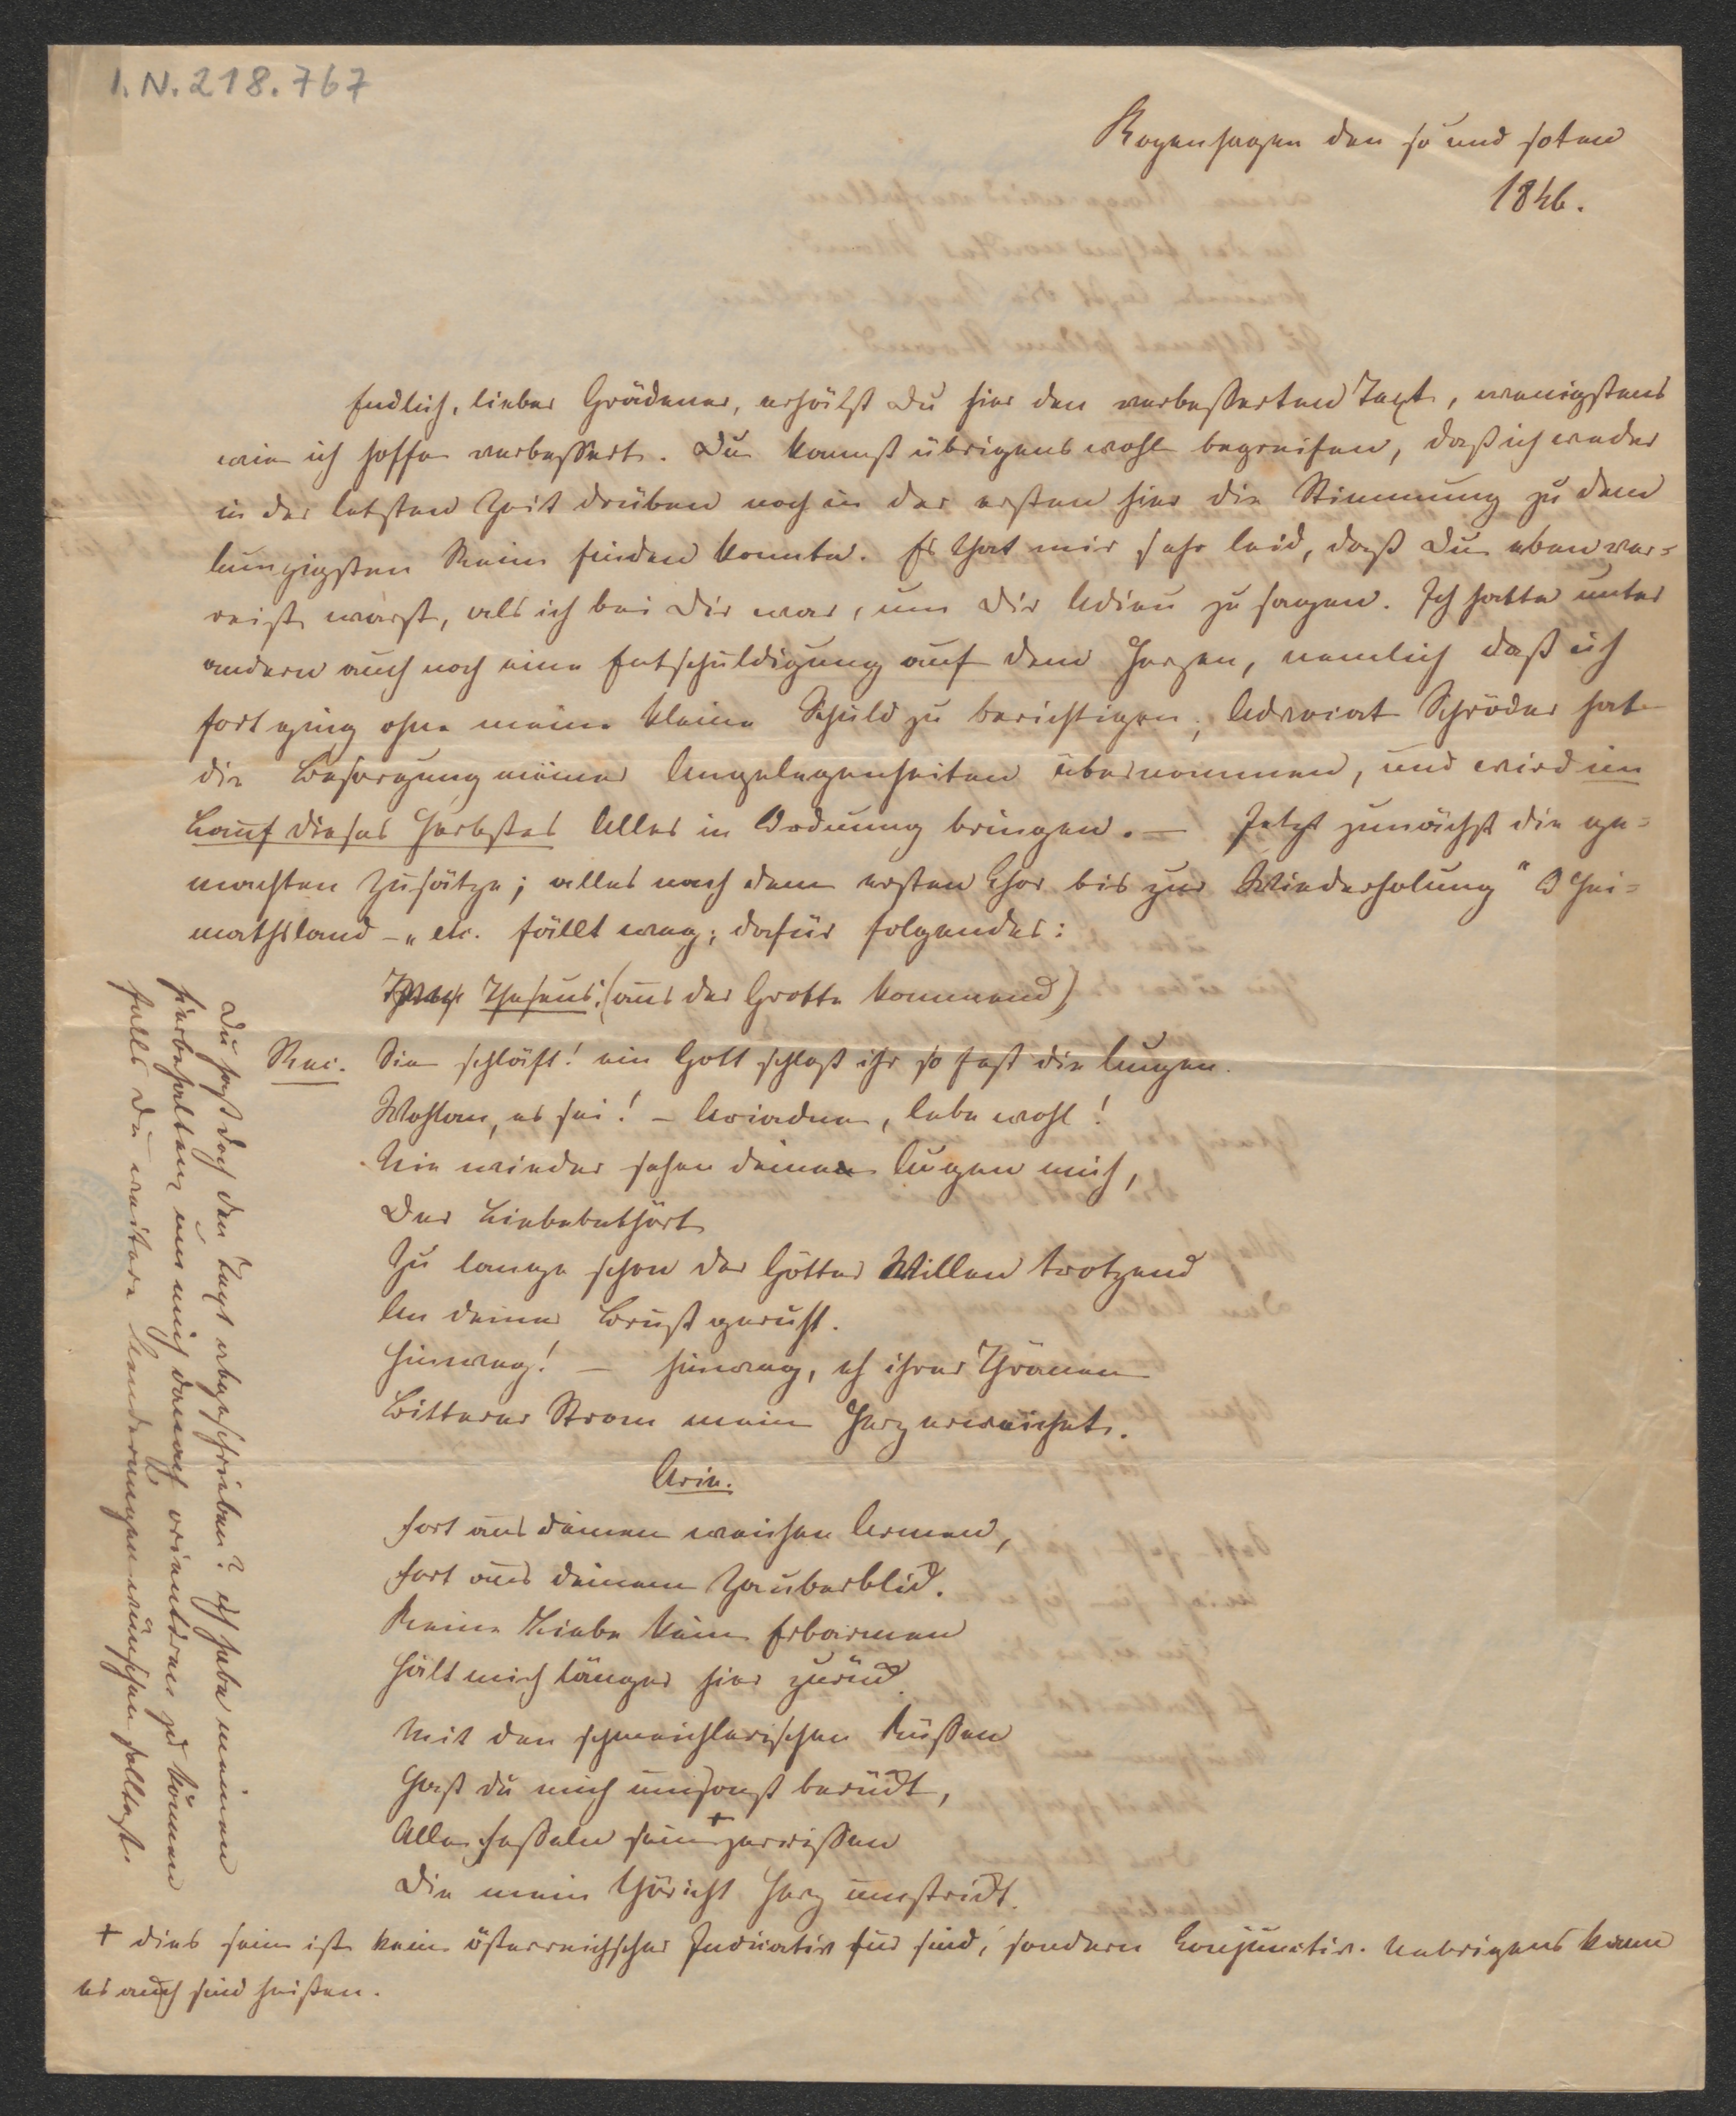 I.N. 218.767
Kopenhagen den so und soten
1846.
Endlich, lieber Grädener, erhälst Du hier den verbesserten Text, wenigstens
wie ich hoffe verbessert. Du kannst übrigens wohl begreifen, daß ich weder
in der letzten Zeit drüben noch in der ersten hier die Stimmung zu dem
lumpigsten Reim finden konnte. Es that mir sehr leid, daß Du eben ver=
reist warst, als ich bei Dir war, um Dir Adieu zu sagen. Ich hatte unter
andern auch noch eine Entschuldigung auf dem Herzen, nemlich daß ich
fort ging ohne meine kleine Schuld zu berichtigen; Advocat Schröder hat
die Besorgung meiner Angelegenheiten übernommen, und wird im
Lauf dieses Herbstes Alles in Ordnung bringen. — Jetzt zunächst die ge=
machten Zusätze; alles nach dem ersten Chor bis zur Wiederholung "O Hei=
mathsland -„ etc. fällt weg; dafür folgendes:
Theseus: (aus der Grotte kommend)
Rec. Sie schläft! ein Gott schloß ihr so fest die Augen.
Wohlan, es sei! - Ariadne, lebe wohl!
Nie wieder sehen deine Augen mich,
Der Liebebethört
Zu lange schon der Götter Willen trotzend
An deiner Brust geruht.
Hinweg! — hinweg, eh ihrer Thränen
Bitterer Strom mein Herz erweichet.
Arie.
Fort aus deinen weichen Armen,
Fort aus deinem Zauberblick.
Keine Liebe kein Erbarmen
Hält mich länger hier zurück.
Mit den schmeichlerischen Küssen
Hast du mich umsonst berückt,
Alle Fesseln sein + zerrissen
Die mein thöricht Herz umstrickt.
+ dies sein ist kein österreichscher Indicativ für sind, sondern Conjunctiv. Uebrigens kann
es auch sind heißen.
Du hast doch den Text abgeschrieben? ich habe meinen
hierbehalten, um mich danach orientiren zu können
falls Du weitere Aenderungen wünschen solltest.